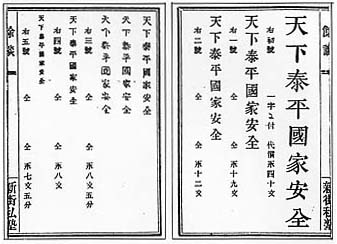 餘談
新街私塾
天下泰平國家安全
右初號 一字ニ付 代價永四十文
天下泰平國家安全
右一號 仝 永十九文
天下泰平國家安全
右二號 仝 永十二文
天下泰平國家安全
天下泰平國家安全
天下泰平國家安全
右三號 仝 永八文五分
天下泰平國家安全
右四號 仝 永八文
天下泰平國家安全
右五號 仝 永七文五分
餘談
新街私塾